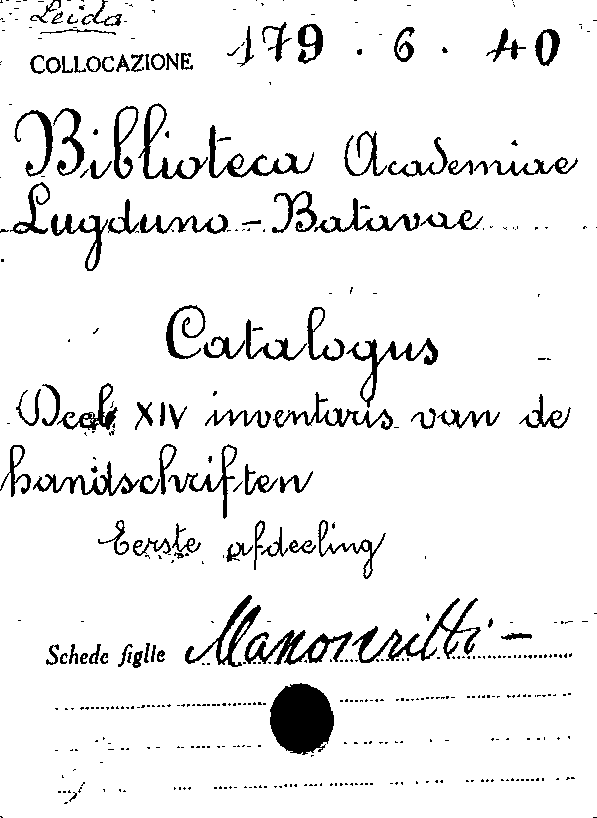 Leida
COLLOCAZIONE 179 . 6 . 40
Biblioteca Academiae
Lugduno - Batavae
Catalogus
Deel XIV inventaris van de
handschriften
Eerste afdeeling
Schede figlie Manoscritti -